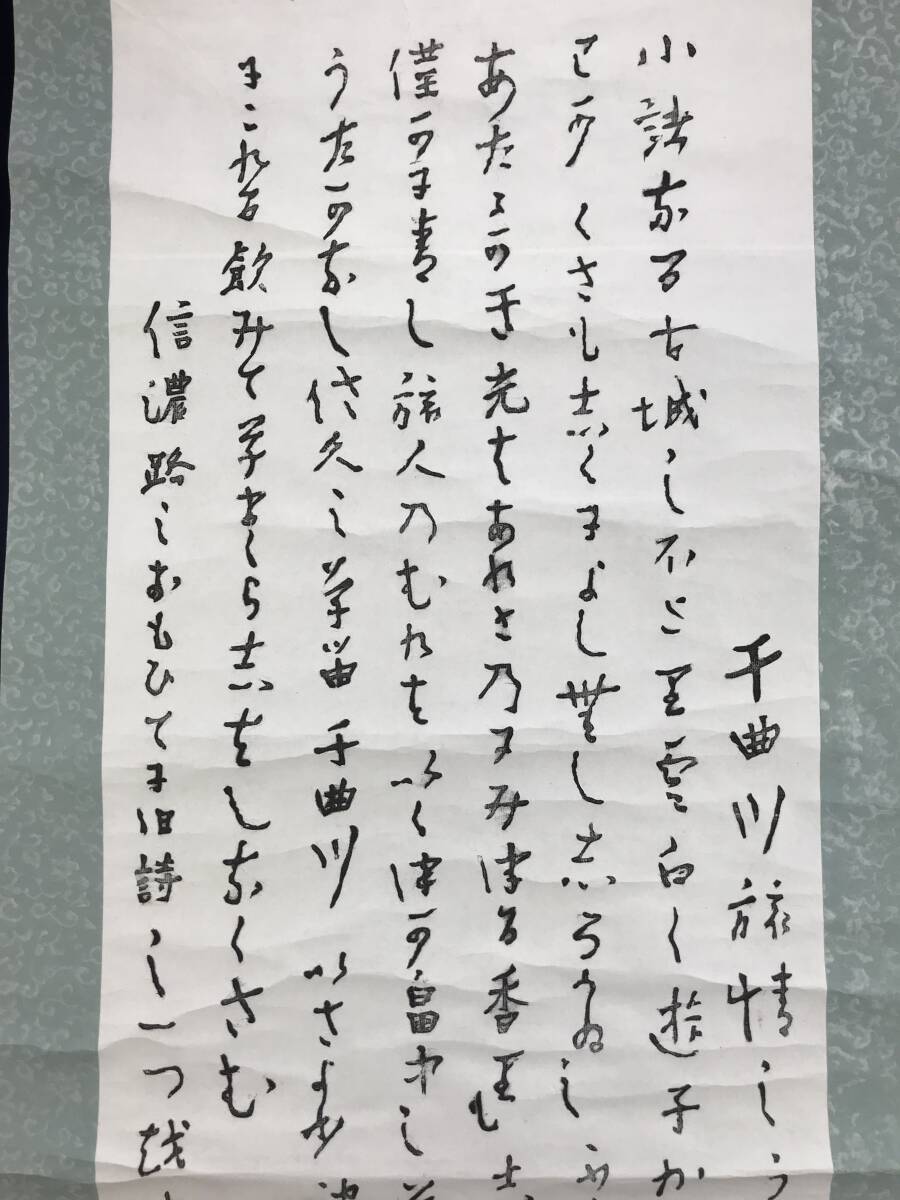 千曲川旅情のう
小諸なる古城のほとり雲白く遊子か
わかくさもしくによしなし志ろかねのふ
あたゝかき光はあれとのにみつる香も志
僅かに青し旅人のむれはいくつか畠中の
うたかなし佐久の草笛 千曲川 いさよふ波
にこれる飲みて草まくら志はしなくさむ
信濃路のおもひてに旧詩の一つを